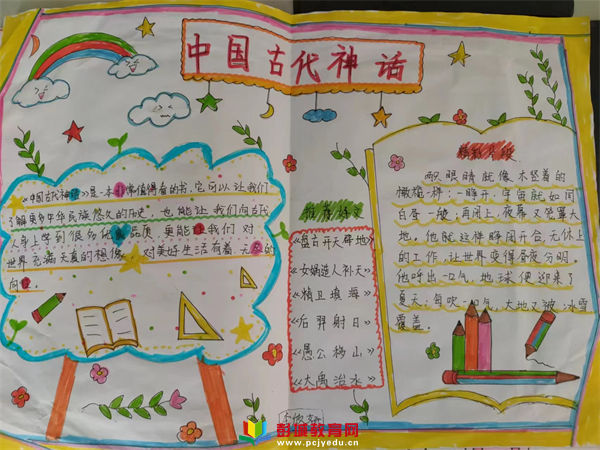 中国古代神话
《中国古代神话》是一本非常值得看的书，它可以让我们
了解更多中华民族悠久的历史，也能让我们向古代
人身上学到很多优良品质，更能让我们对
世界充满天真的想像，对美好生活有着无限的
向
推荐
《盘古开天辟地》
《女娲造人补天》
《精卫填海》
《后羿射日》
《愚公移山》
《大禹治水》
精彩片段
两只眼睛就像木竖着的
橄榄一样：一睁开，宇宙就如同
白昼一般；再闭上，夜幕又笼罩大
地。他就这样睁闭开合，无休止
的工作，让世界变得昼夜分明。
他呼出一口气，地球便迎来了
夏天；每吹一口气，大地又被冰雪
覆盖。
彭城教育网
www.pcjyedu.cn